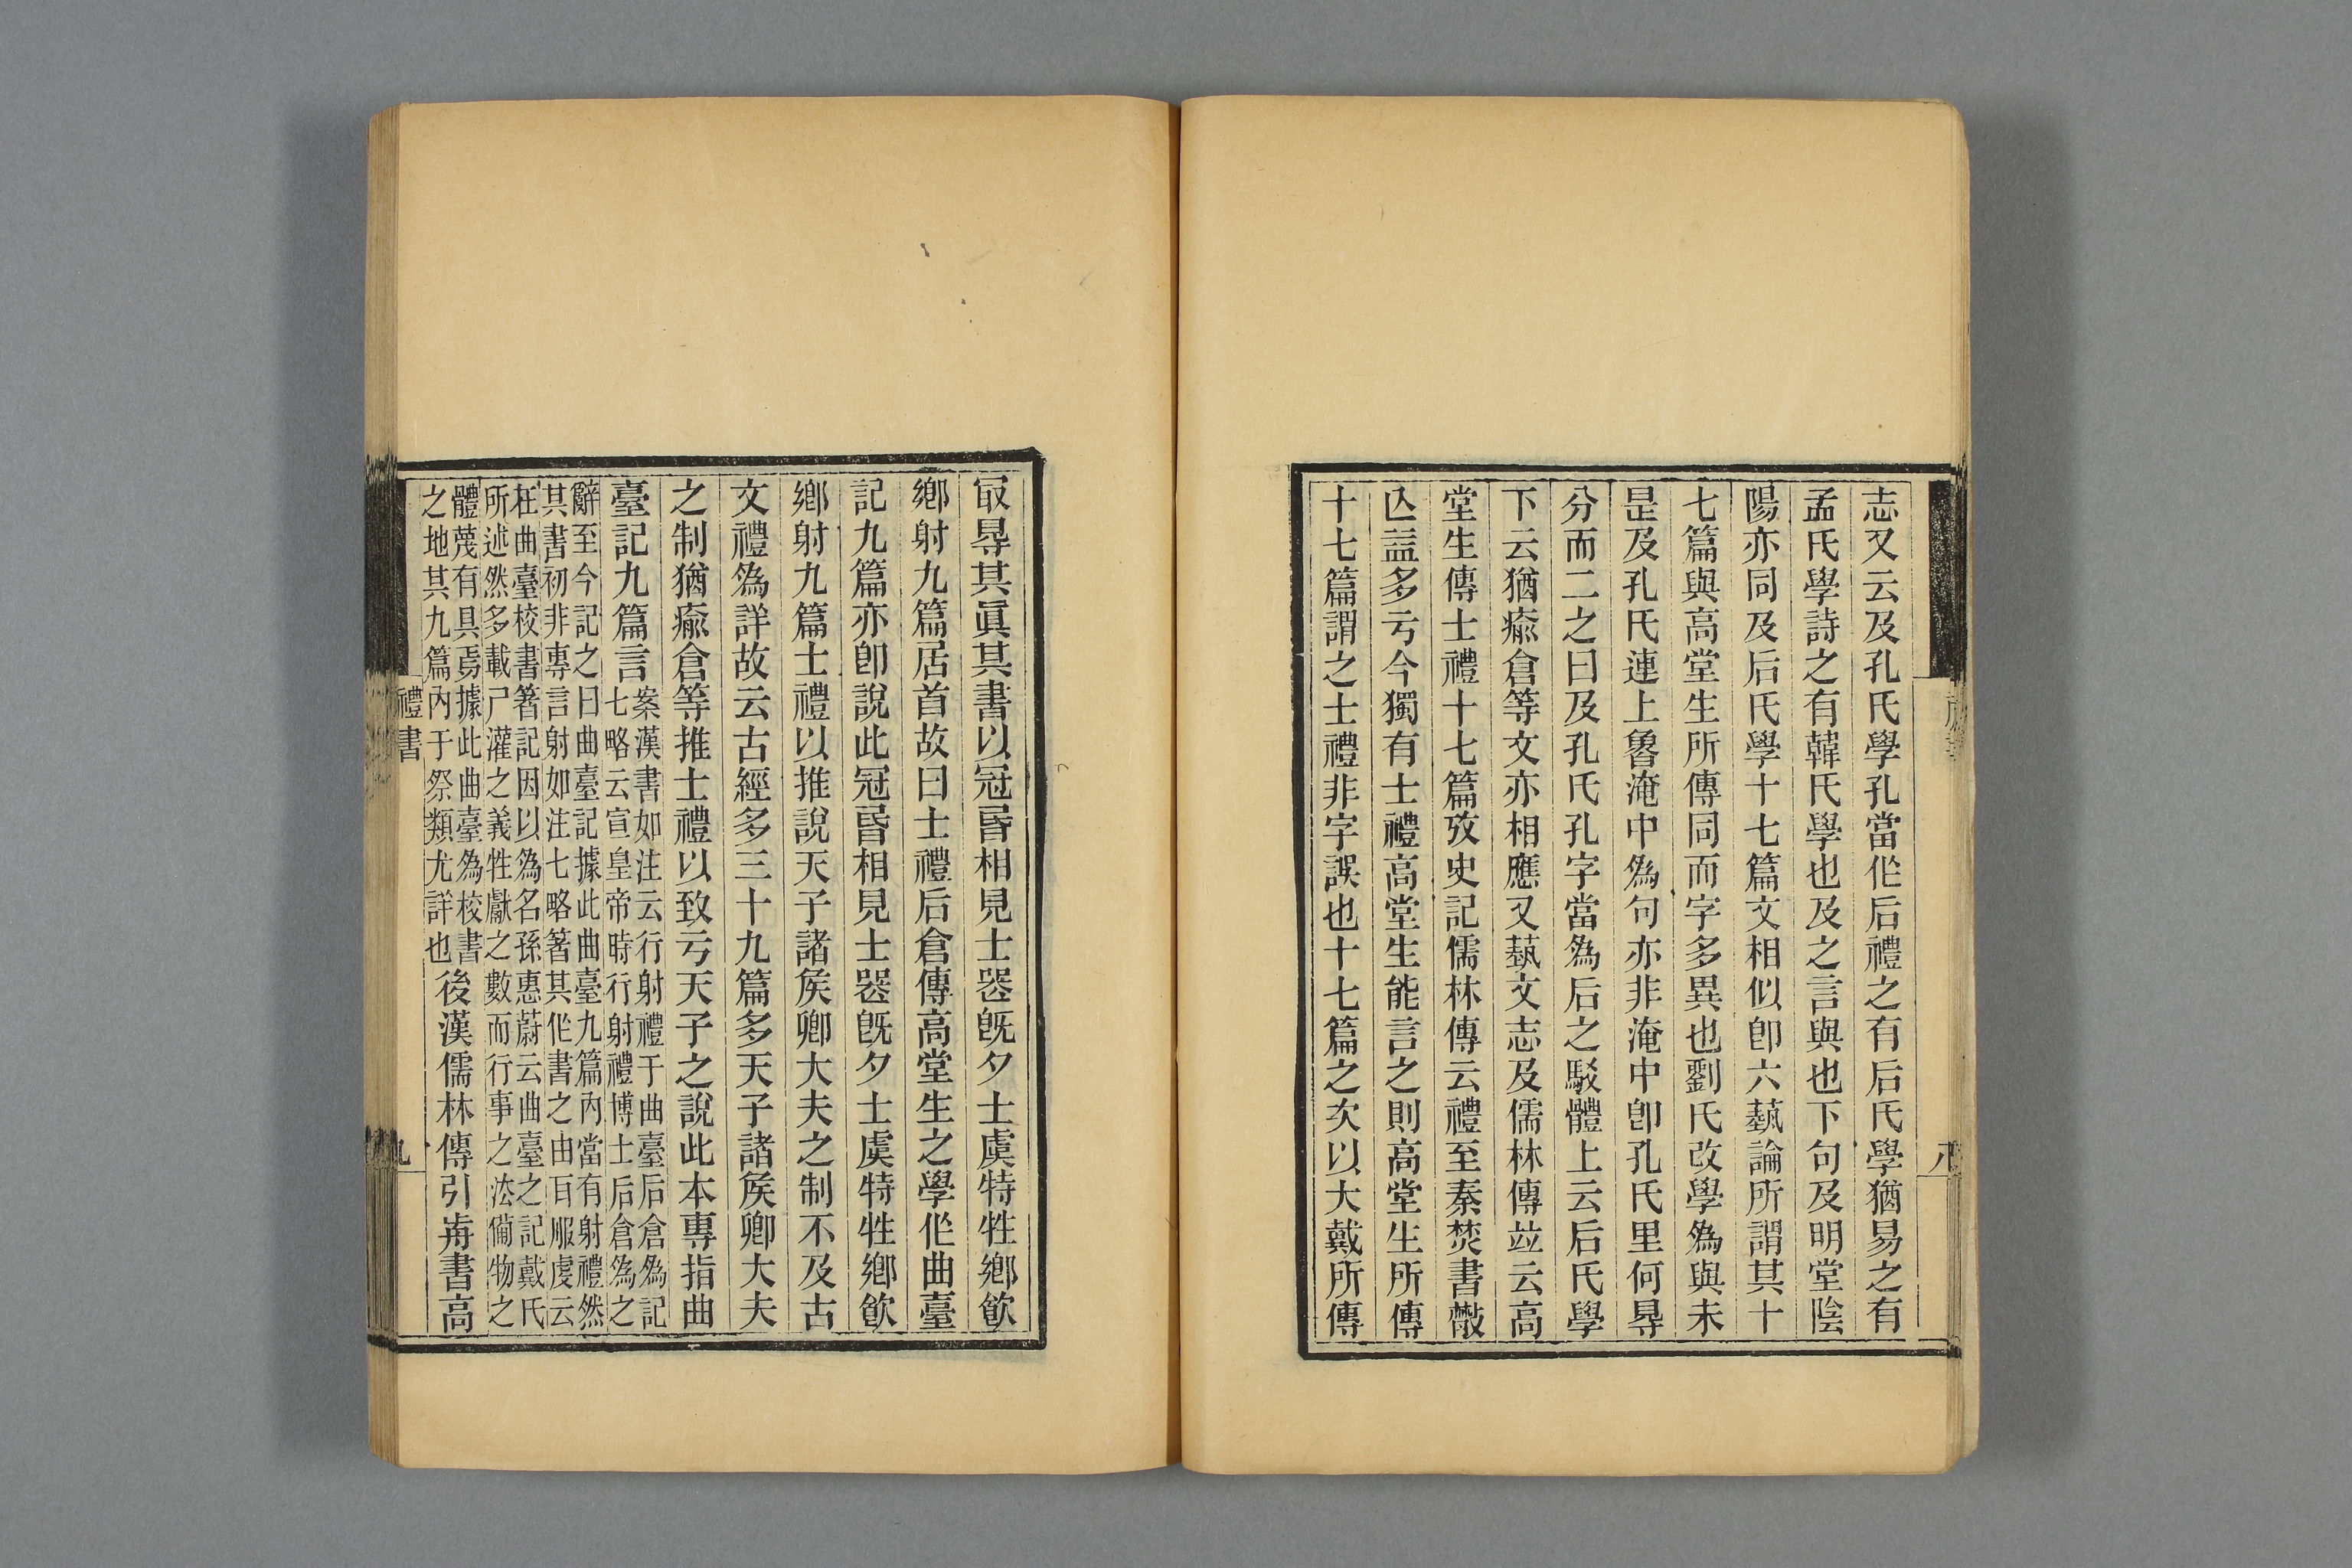 志又云及孔氏學孔當作后禮之有后氏學猶易之有
孟氏學詩之有韓氏學也及之言與也下句及明堂陰
陽亦同及后氏學十七篇文相似卽六藝論所謂其十
七篇與高堂生所傳同而字多異也劉氏改學爲與未
是及孔氏連上魯淹中爲句亦非淹中卽孔氏里何㝵
分而二之曰及孔氏孔字當爲后之駁體上云后氏學
下云猶瘉倉等文亦相應又藝文志及儒林傳竝云高
堂生傳士禮十七篇攷史記儒林傳云禮至秦焚書散
亾葢多亏今獨有士禮高堂生能言之則高堂生所傳
十七篇謂之士禮非字誤也十七篇之次以大戴所傳
八
冣㝵其眞其書以冠昏相見士喪旣夕士虞特牲鄉飮
鄉射九篇居首故曰士禮后倉傳高堂生之學作曲臺
記九篇亦卽說此冠昏相見士喪旣夕士虞特牲鄉飮
鄉射九篇士禮以推說天子諸矦卿大夫之制不及古
文禮爲詳故云古經多三十九篇多天子諸矦卿大夫
之制猶瘉倉等推士禮以致亏天子之說此本專指曲
臺記九篇言
案漢書如注云行射禮于曲臺后倉爲記
七略云宣皇帝時行射禮博士后倉爲之
辭至今記之曰曲臺記據此曲臺九篇內當有射禮然
其書初非專言射如注七略箸其作書之由耳服虔云
在曲臺校書箸記因以爲名孫惠蔚云曲臺之記戴氏
所述然多載尸灌之義牲獻之數而行事之法備物之
體蔑有具焉據此曲臺爲校書
之地其九篇內于祭類尤詳也
後漢儒林傳引歬書高
禮書
九